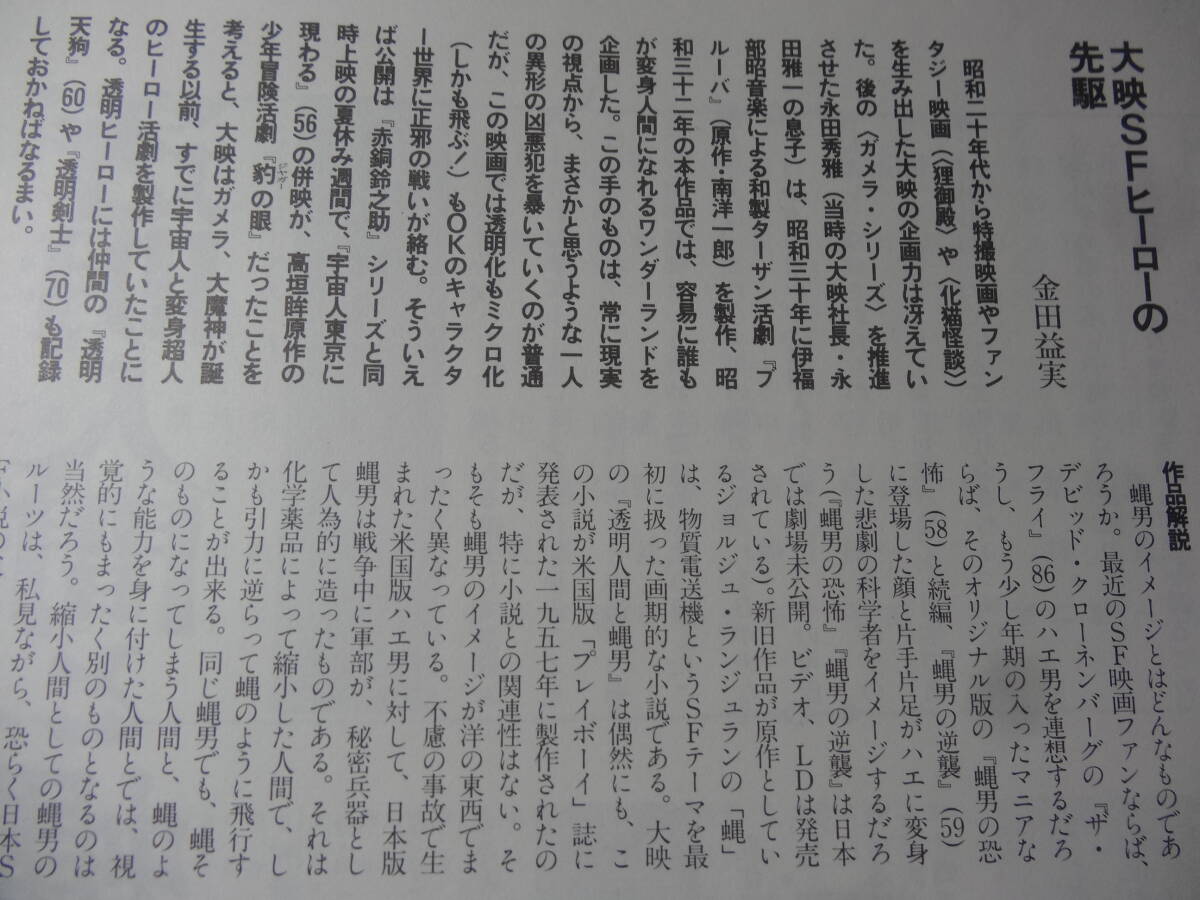 大映SFヒーローの
先駆
金田益実
昭和二十年代から特撮映画やファン
タジー映画(〈狸御殿〉や〈化猫怪談〉)
を生み出した大映の企画力は冴えてい
た。後の〈ガメラ・シリーズ〉を推進
させた永田秀雅(当時の大映社長・永
田雅一の息子)は、昭和三十年に伊福
部昭音楽による和製ターザン活劇『ブ
ルーバ』(原作・南洋一郎)を製作、昭
和三十二年の本作品では、容易に誰も
が変身人間になれるワンダーランドを
企画した。この手のものは、常に現実
の視点から、まさかと思うような一人
の異形の凶悪犯を暴いていくのが普通
だが、この映画では透明化もミクロ化
(しかも飛ぶ!)もOKのキャラクタ
ー世界に正邪の戦いが絡む。そういえ
ば公開は『赤銅鈴之助』シリーズと同
時上映の夏休み週間で、『宇宙人東京に
現わる』(56)の併映が、高垣眸原作の
少年冒険活劇『豹の眼』だったことを
ジャガー
考えると、大映はガメラ、大魔神が誕
生する以前、すでに宇宙人と変身超人
のヒーロー活劇を製作していたことに
なる。透明ヒーローには仲間の『透明
天狗』(60)や『透明剣士』(70)も記録
しておかねばなるまい。
作品解説
蝿男のイメージとはどんなものであ
ろうか。最近のSF映画ファンならば、
デビッド・クローネンバーグの『ザ・
フライ』(86)のハエ男を連想するだろ
うし、もう少し年期の入ったマニアな
らば、そのオリジナル版の『蝿男の恐
怖』(58)と続編、『蝿男の逆襲』(59)
に登場した顔と片手片足がハエに変身
した悲劇の科学者をイメージするだろ
う(『蝿男の恐怖』『蝿男の逆襲』は日本
では劇場未公開。ビデオ、LDは発売
されている)。新旧作品が原作としてい
るジョルジュ・ランジュランの「蝿」
は、物質電送機というSFテーマを最
初に扱った画期的な小説である。大映
の『透明人間と蝿男』は偶然にも、こ
の小説が米国版「プレイボーイ」誌に
発表された一九五七年に製作されたの
だが、特に小説との関連性はない。そ
もそも蝿男のイメージが洋の東西でま
ったく異なっている。不慮の事故で生
まれた米国版ハエ男に対して、日本版
蝿男は戦争中に軍部が、秘密兵器とし
て人為的に造ったものである。それは
化学薬品によって縮小した人間で、し
かも引力に逆らって蝿のように飛行す
ることが出来る。同じ蝿男でも、蝿そ
のものになってしまう人間と、蝿のよ
うな能力を身に付けた人間とでは、視
覚的にもまったく別のものとなるのは
当然だろう。縮小人間としての蝿男の
ルーツは、私見ながら、恐らく日本S